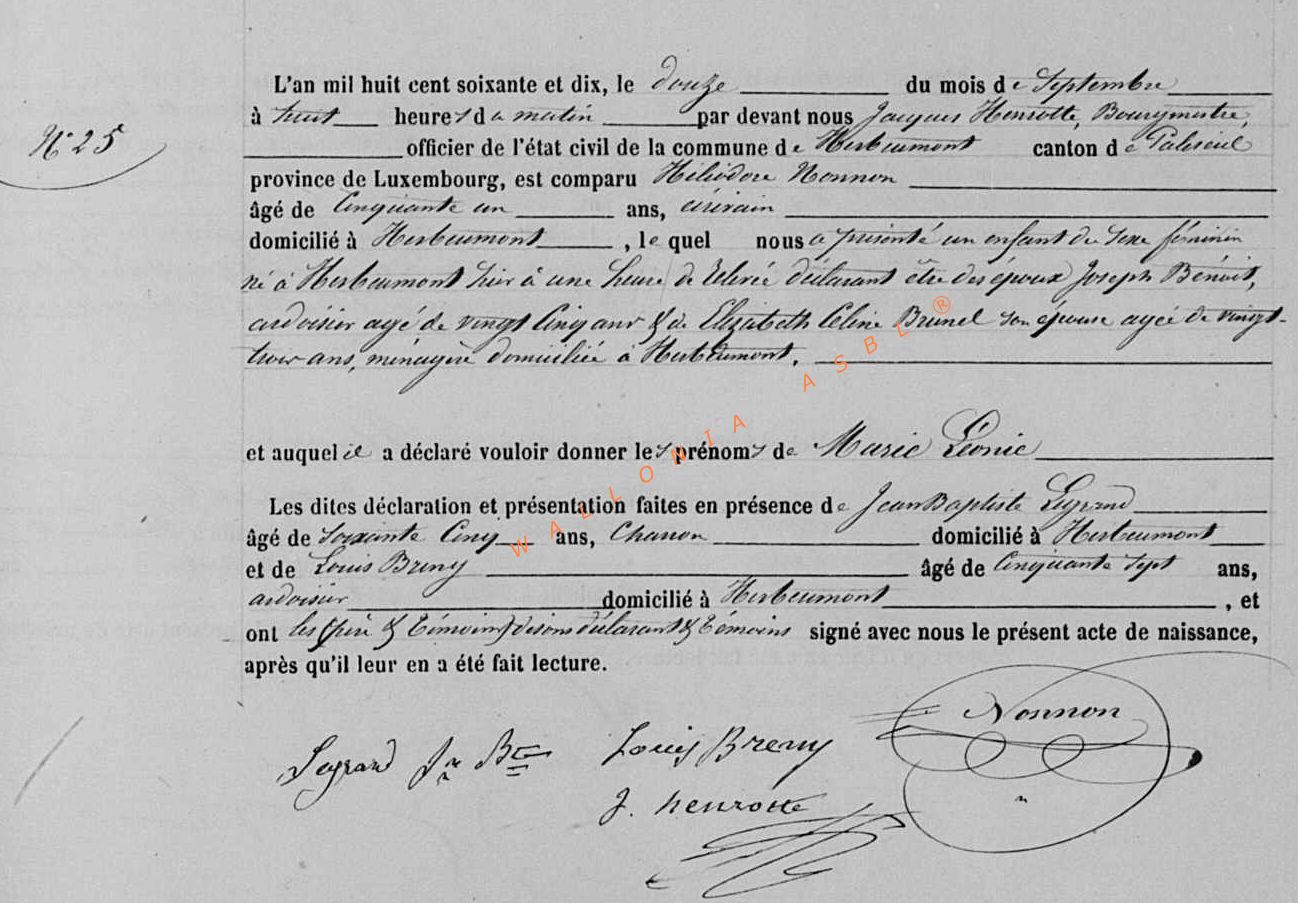 N° 25
L'an mil huit cent soixante et dix, le douze du mois de Septembre
à huit heures du matin par devant nous Jacques Henrotte, Bourgmestre,
officier de l'état civil de la commune de Herbeumont canton de Paliseul
province de Luxembourg, est comparu Héliodore Nonnon
âgé de Cinquante un ans, écrivain
domicilié à Herbeumont, le quel nous a présenté un enfant du Sexe féminin
né à Herbeumont hier à une heure de relevée déclarant être des époux Joseph Benoit,
ardoisier agé de vingt Cinq ans & de Elizabeth Céline Brunel son épouse agée de vingt-
trois ans, ménagère domiciliée à Herbeumont.
et auquel il a déclaré vouloir donner les prénoms de Marie Léonie
Les dites déclaration et présentation faites en présence de Jean Baptiste Legrand
âgé de soixante Cinq ans, Charron domicilié à Herbeumont
et de Louis Breny âgé de Cinquante Sept ans,
ardoisier domicilié à Herbeumont, et
ont les (père & témoins) disons déclarant & témoins signé avec nous le présent acte de naissance,
après qu'il leur en a été fait lecture.
Nonnon
Legrand Jn Bte Louis Breny
J. henrotte
WALLONIA ASBL ®